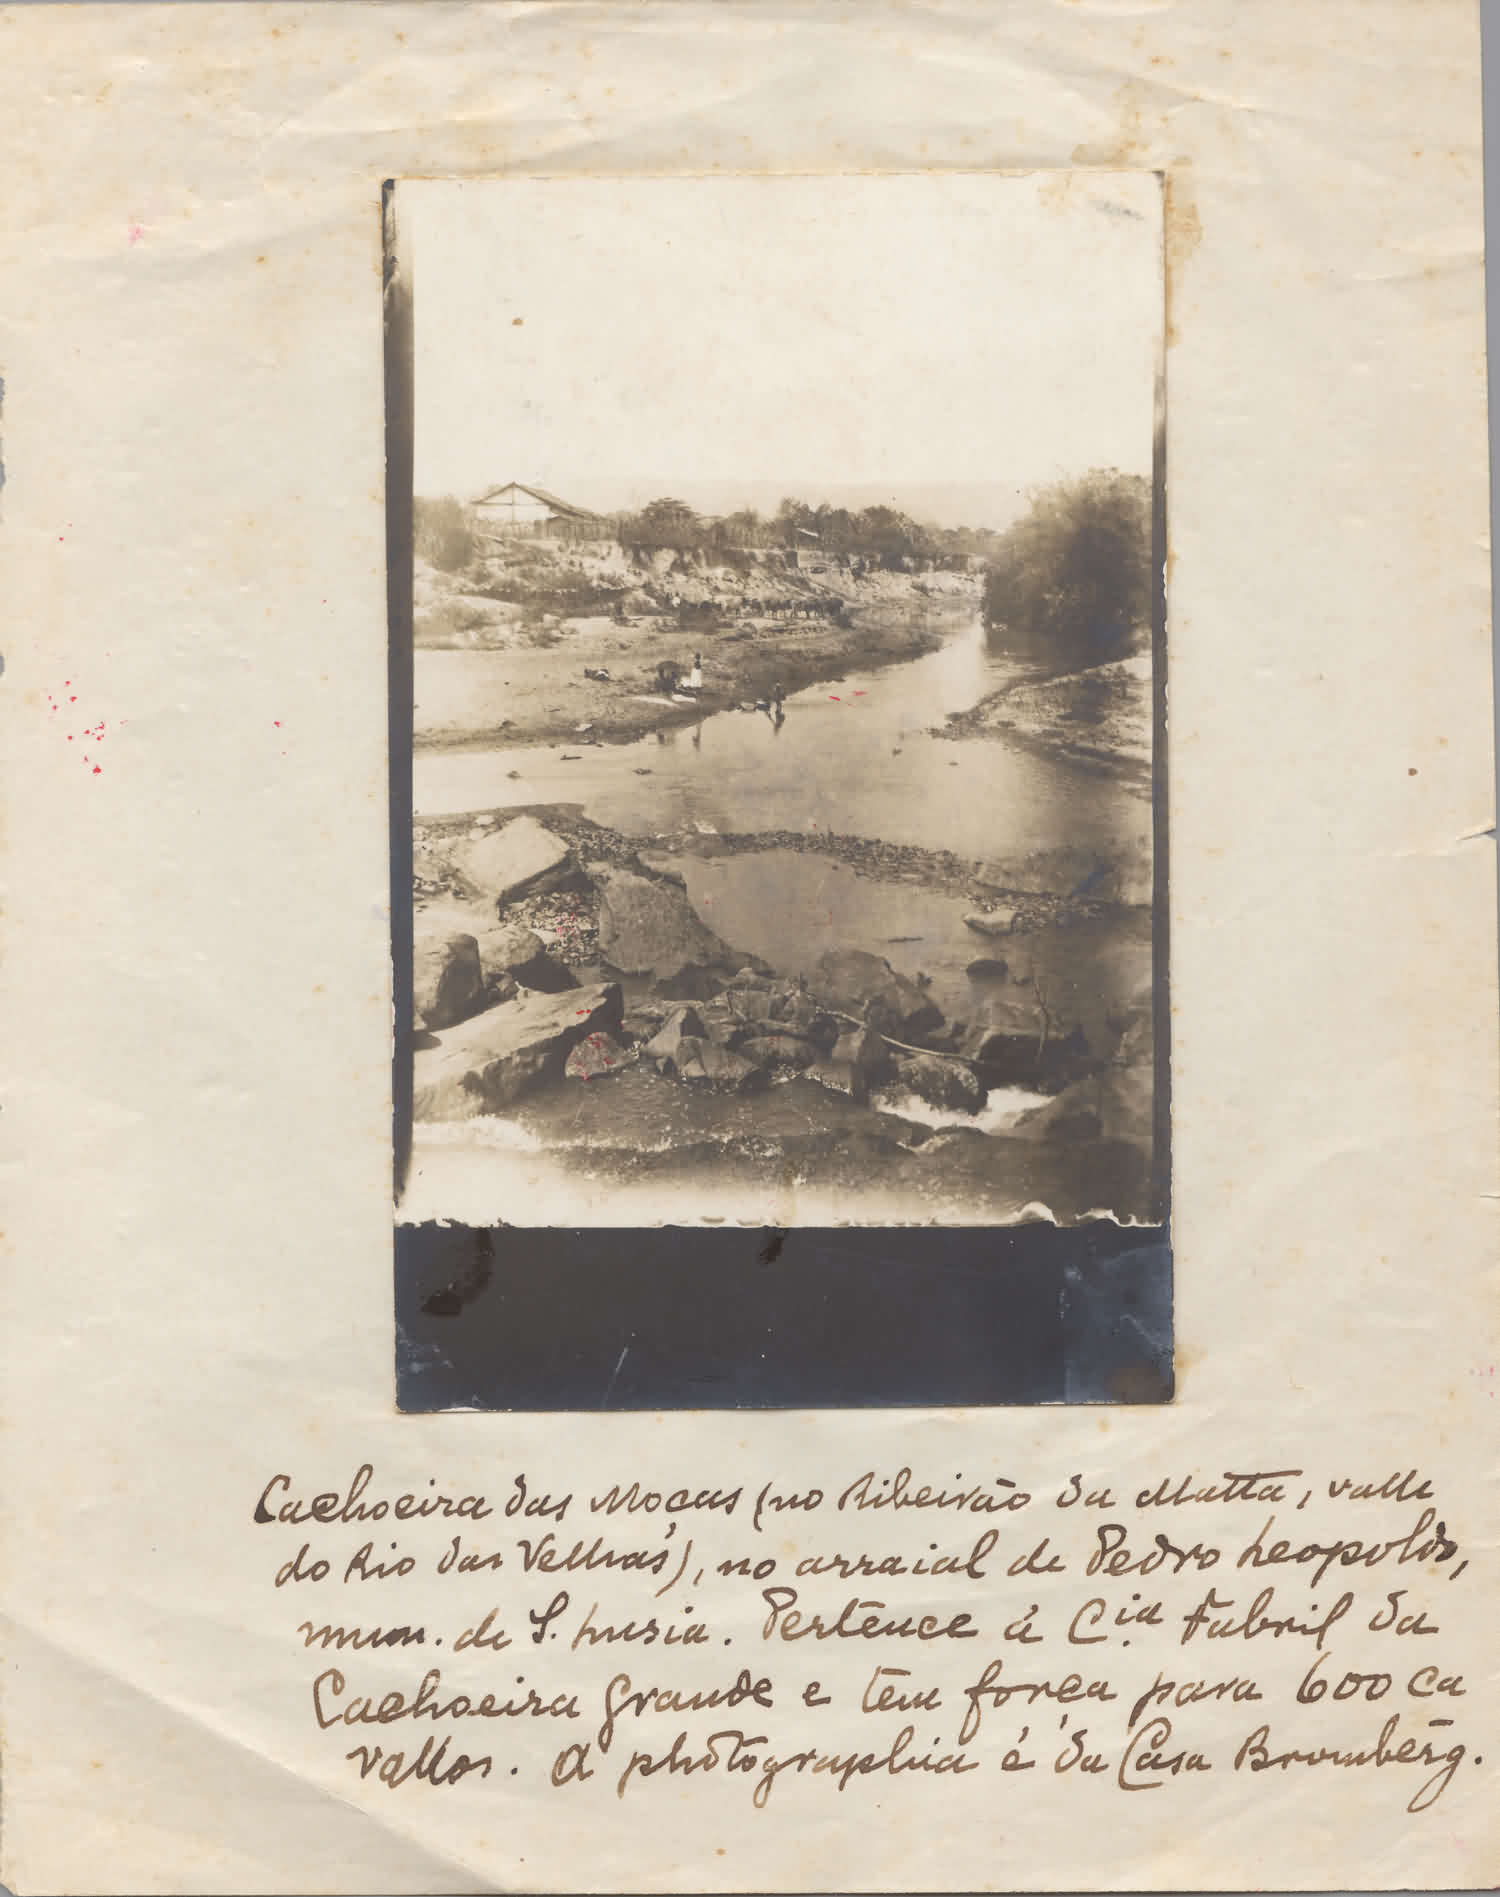 Cachoeira das Moças (no Ribeirão da Matta, valle
do Rio das Velhas), no arraial de Pedro Leopoldo,
mun. de S. Lusia. Pertence á C.ia Fabril da
Cachoeira Grande e tem força para 600 ca
vallos. A photographia é da Casa Bromberg.